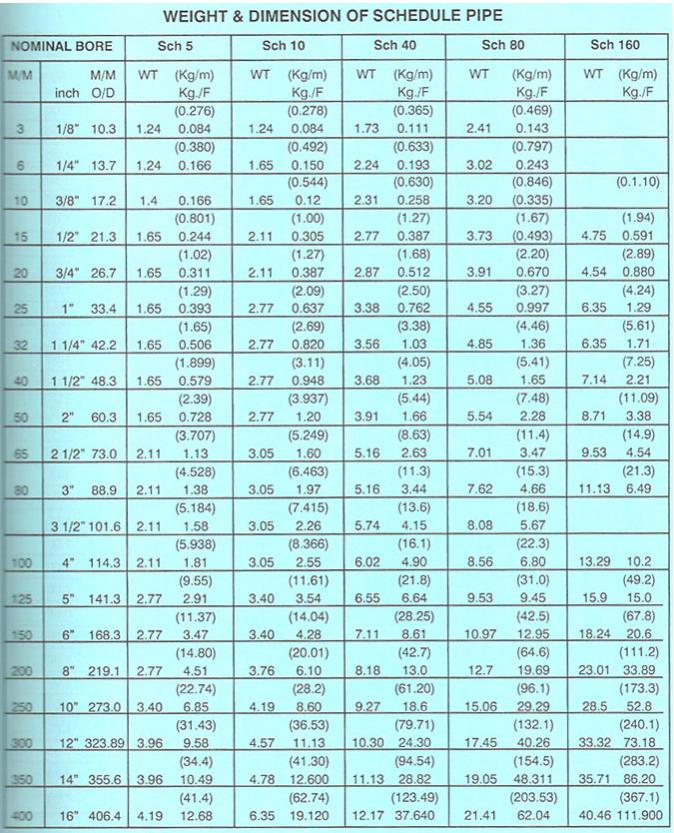 WEIGHT & DIMENSION OF SCHEDULE PIPE
NOMINAL BORE Sch 5 Sch 10 Sch 40 Sch 80 Sch 160
M/M M/M WT (Kg/m) WT (Kg/m) WT (Kg/m) WT (Kg/m) WT (Kg/m)
inch O/D Kg./F Kg./F Kg./F Kg./F Kg./F
(0.276) (0.278) (0.365) (0.469)
3 1/8" 10.3 1.24 0.084 1.24 0.084 1.73 0.111 2.41 0.143
(0.380) (0.492) (0.633) (0.797)
6 1/4" 13.7 1.24 0.166 1.65 0.150 2.24 0.193 3.02 0.243
(0.544) (0.630) (0.846) (0.1.10)
10 3/8" 17.2 1.4 0.166 1.65 0.12 2.31 0.258 3.20 (0.335)
(0.801) (1.00) (1.27) (1.67) (1.94)
15 1/2" 21.3 1.65 0.244 2.11 0.305 2.77 0.387 3.73 (0.493) 4.75 0.591
(1.02) (1.27) (1.68) (2.20) (2.89)
20 3/4" 26.7 1.65 0.311 2.11 0.387 2.87 0.512 3.91 0.670 4.54 0.880
(1.29) (2.09) (2.50) (3.27) (4.24)
25 1" 33.4 1.65 0.393 2.77 0.637 3.38 0.762 4.55 0.997 6.35 1.29
(1.65) (2.69) (3.38) (4.46) (5.61)
32 1 1/4" 42.2 1.65 0.506 2.77 0.820 3.56 1.03 4.85 1.36 6.35 1.71
(1.899) (3.11) (4.05) (5.41) (7.25)
40 1 1/2" 48.3 1.65 0.579 2.77 0.948 3.68 1.23 5.08 1.65 7.14 2.21
(2.39) (3.937) (5.44) (7.48) (11.09)
50 2" 60.3 1.65 0.728 2.77 1.20 3.91 1.66 5.54 2.28 8.71 3.38
(3.707) (5.249) (8.63) (11.4) (14.9)
65 2 1/2" 73.0 2.11 1.13 3.05 1.60 5.16 2.63 7.01 3.47 9.53 4.54
(4.528) (6.463) (11.3) (15.3) (21.3)
80 3" 88.9 2.11 1.38 3.05 1.97 5.16 3.44 7.62 4.66 11.13 6.49
(5.184) (7.415) (13.6) (18.6)
3 1/2" 101.6 2.11 1.58 3.05 2.26 5.74 4.15 8.08 5.67
(5.938) (8.366) (16.1) (22.3)
100 4" 114.3 2.11 1.81 3.05 2.55 6.02 4.90 8.56 6.80 13.29 10.2
(9.55) (11.61) (21.8) (31.0) (49.2)
125 5" 141.3 2.77 2.91 3.40 3.54 6.55 6.64 9.53 9.45 15.9 15.0
(11.37) (14.04) (28.25) (42.5) (67.8)
150 6" 168.3 2.77 3.47 3.40 4.28 7.11 8.61 10.97 12.95 18.24 20.6
(14.80) (20.01) (42.7) (64.6) (111.2)
200 8" 219.1 2.77 4.51 3.76 6.10 8.18 13.0 12.7 19.69 23.01 33.89
(22.74) (28.2) (61.20) (96.1) (173.3)
250 10" 273.0 3.40 6.85 4.19 8.60 9.27 18.6 15.06 29.29 28.5 52.8
(31.43) (36.53) (79.71) (132.1) (240.1)
300 12" 323.89 3.96 9.58 4.57 11.13 10.30 24.30 17.45 40.26 33.32 73.18
(34.4) (41.30) (94.54) (154.5) (283.2)
350 14" 355.6 3.96 10.49 4.78 12.600 11.13 28.82 19.05 48.311 35.71 86.20
(41.4) (62.74) (123.49) (203.53) (367.1)
400 16" 406.4 4.19 12.68 6.35 19.120 12.17 37.640 21.41 62.04 40.46 111.900